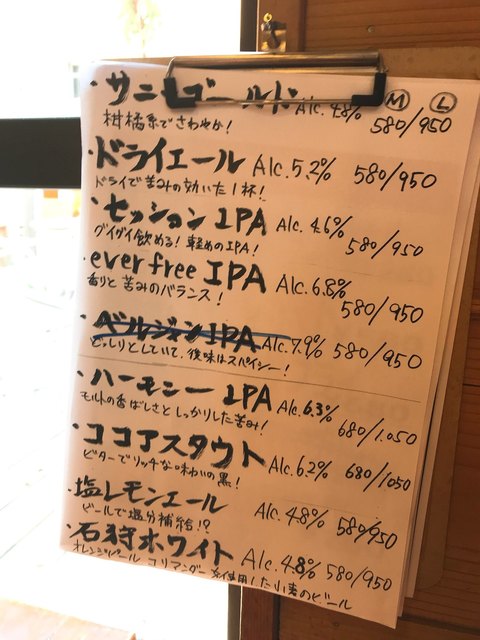 ・サニーゴールド Alc. 4.8% Ⓜ 580/950 Ⓛ
柑橘系でさわやか！
・ドライエール Alc. 5.2% 580/950
ドライで苦みの効いた1杯！
・セッションIPA Alc. 4.6% 580/950
グイグイ飲める！軽めのIPA！
・ever free IPA Alc. 6.8% 580/950
香りと苦みのバランス！
・ベルジャンIPA Alc. 7.9% 580/950
どっしりとしていて、後味はスパイシー！
・ハーモニーIPA Alc. 6.3% 680/1.050
モルトの香ばしさとしっかりした苦み！
・ココアスタウト Alc. 6.2% 680/1050
ビターでリッチな味わいの黒！
・塩レモンエール Alc. 4.8% 580/950
ビールで塩分補給！？
・石狩ホワイト Alc. 4.8% 580/950
オレンジピール コリアンダー を使用した小麦のビール